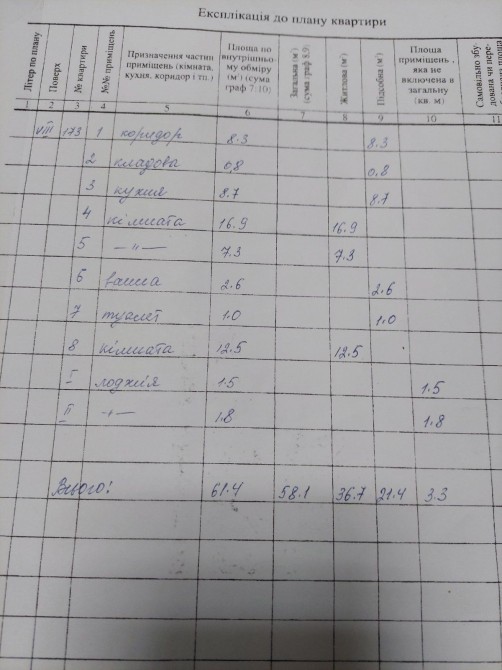 Експлікація до плану квартири
Літер по плану | Поверх | № квартири | №№ приміщень | Призначення частин приміщень (кімната, кухня, коридор і тп.) | Площа по внутрішньому обміру (м²) (сума граф 7,10) | Загальна (м²) (сума граф 8,9) | Житлова (м²) | Підсобна (м²) | Площа приміщень, яка не включена в загальну (кв. м) | Самовільно збудована чи пере
1 2 3 4 5 6 7 8 9 10 11
VIII 173 1 коридор 8.3 8.3
2 кладова 0.8 0.8
3 кухня 8.7 8.7
4 кімната 16.9 16.9
5 —"— 7.3 7.3
6 ванна 2.6 2.6
7 туалет 1.0 1.0
8 кімната 12.5 12.5
I лоджія 1.5 1.5
II —"— 1.8 1.8
Всього: 61.4 58.1 36.7 21.4 3.3